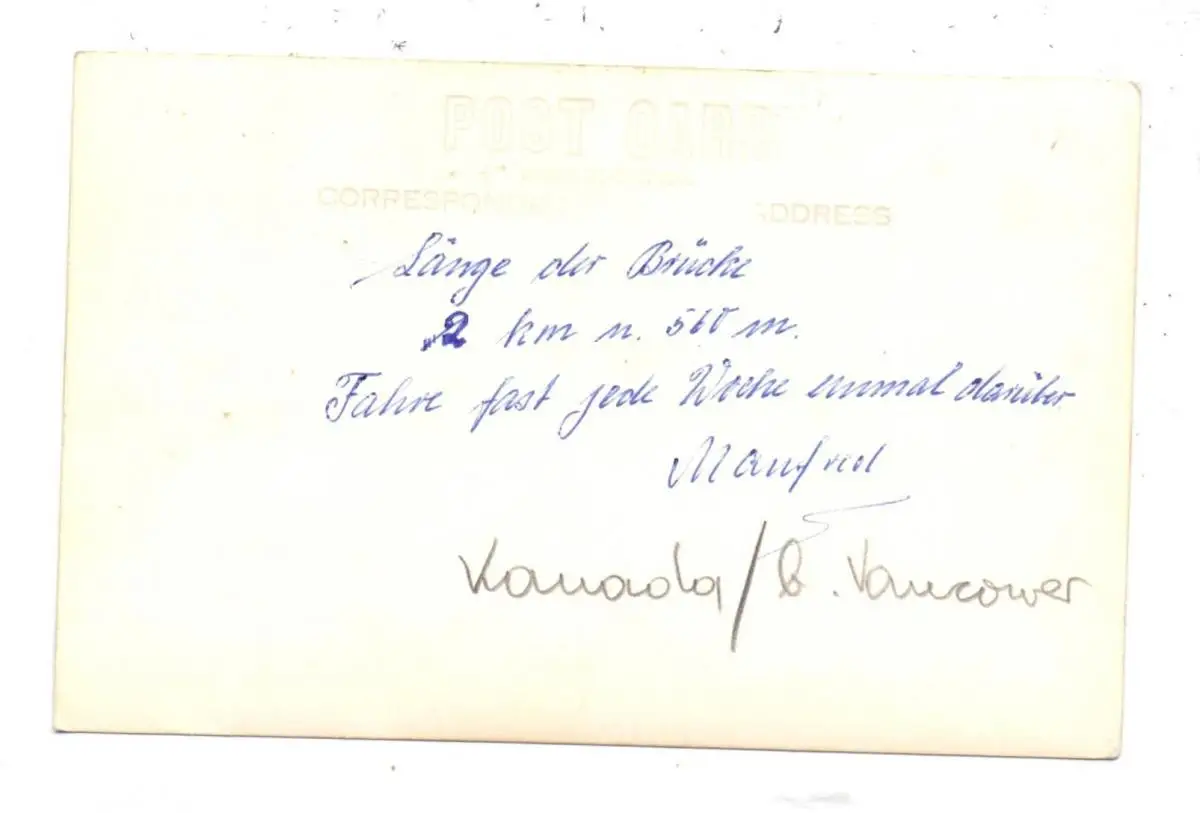 POST CARD
CORRESPONDENCE ADDRESS
Länge der Brücke
2 km u. 560 m.
Fahre fast jede Woche einmal darüber
Manfred
Kanada / b. Vancower